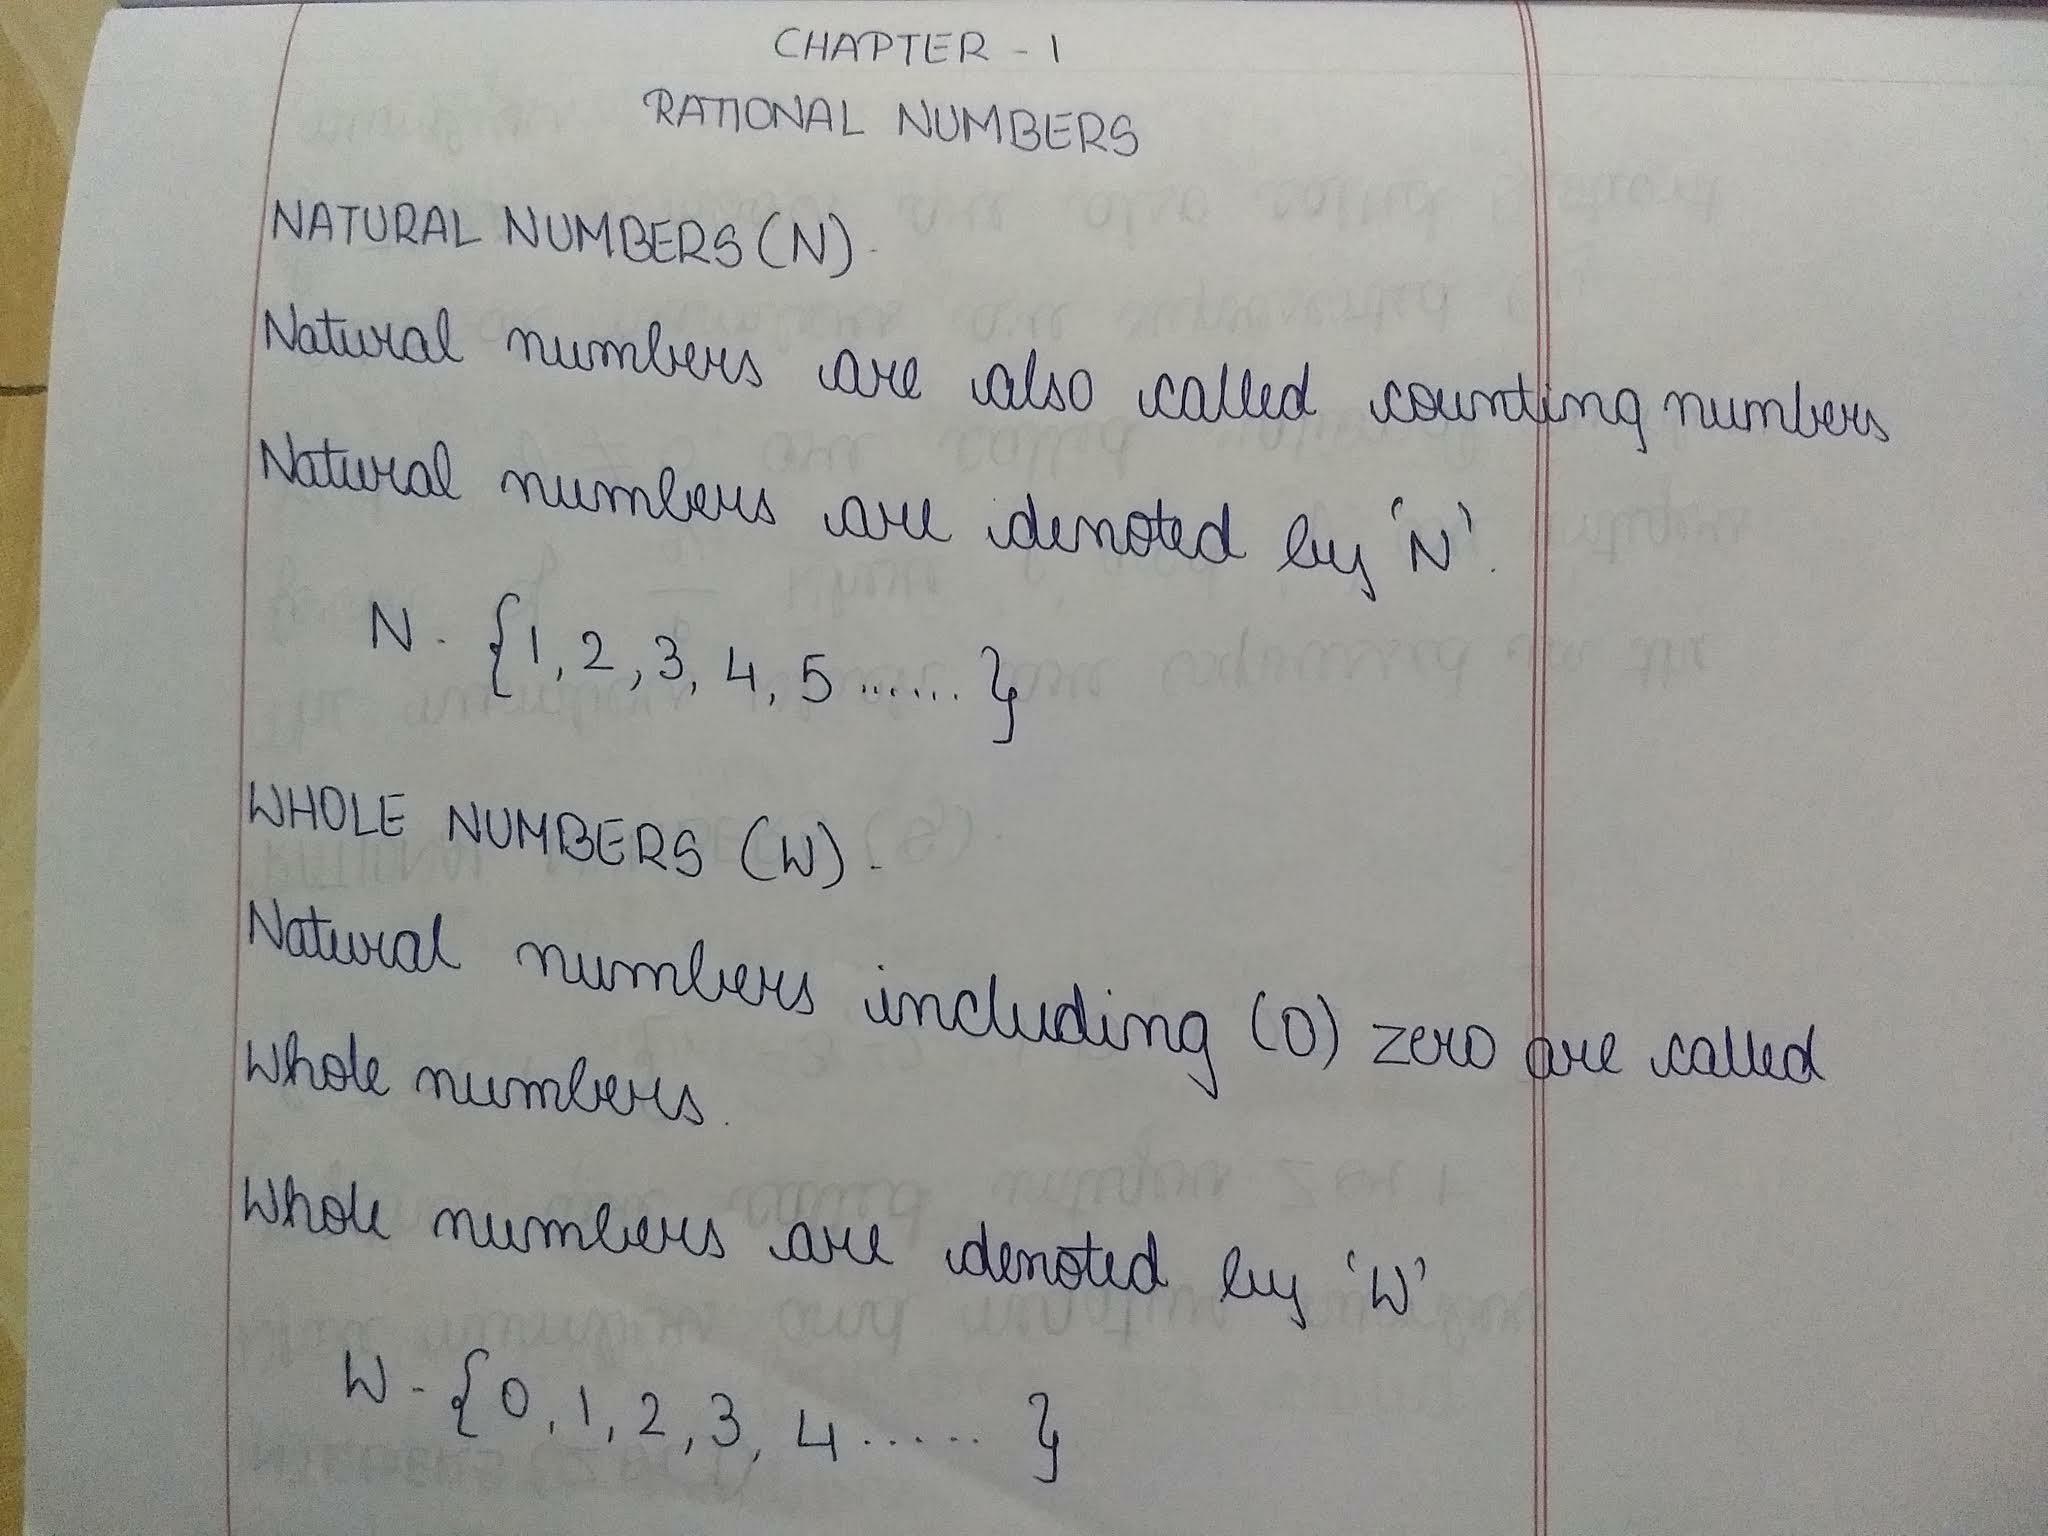 CHAPTER - 1
RATIONAL NUMBERS
NATURAL NUMBERS (N).
Natural numbers are also called counting numbers
Natural numbers are denoted by 'N'.
N - {1, 2, 3, 4, 5 ...... }
WHOLE NUMBERS (W) -
Natural numbers including (0) zero are called
Whole numbers.
Whole numbers are denoted by 'W'
W - {0, 1, 2, 3, 4 ...... }